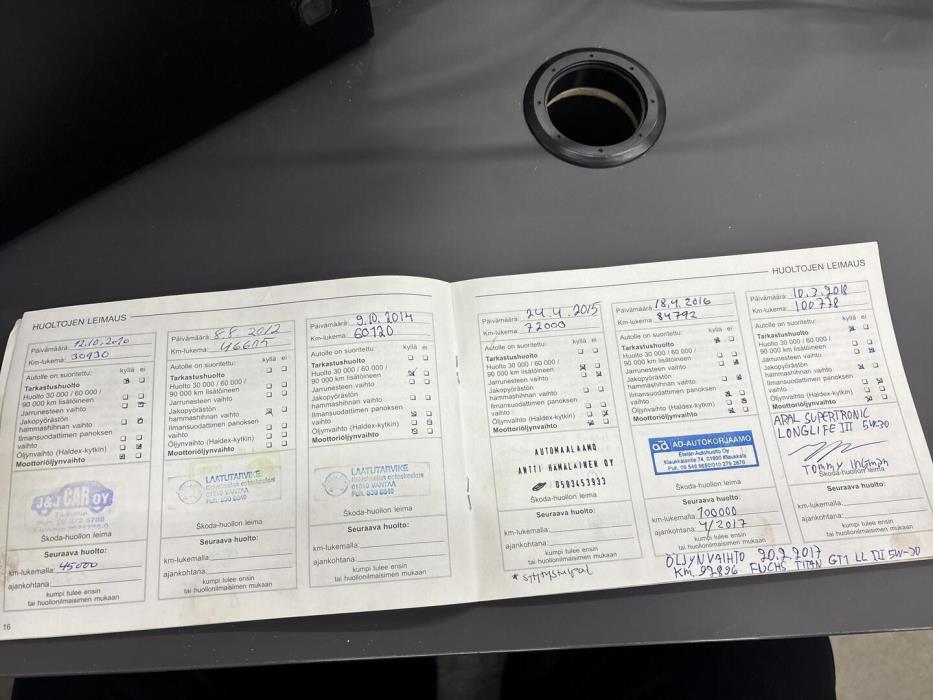 HUOLTOJEN LEIMAUS
Päivämäärä: 12.10.2010
Km-lukema: 30930
Autolle on suoritettu: kyllä ei
Tarkastushuolto
Huolto 30 000 / 60 000 /
90 000 km lisätöineen
Jarrunesteen vaihto
Jakopyörästön
hammashihnan vaihto
Ilmansuodattimen panoksen
vaihto
Öljynvaihto (Haldex-kytkin)
Moottoriöljynvaihto
J&J CAR OY
Škoda-huollon leima
Seuraava huolto:
km-lukemalla: 45000
ajankohtana:
kumpi tulee ensin
tai huollonilmaisimen mukaan
16
Päivämäärä: 8.8.2012
Km-lukema: 46605
Autolle on suoritettu: kyllä ei
Tarkastushuolto
Huolto 30 000 / 60 000 /
90 000 km lisätöineen
Jarrunesteen vaihto
Jakopyörästön
hammashihnan vaihto
Ilmansuodattimen panoksen
vaihto
Öljynvaihto (Haldex-kytkin)
Moottoriöljynvaihto
LAATUTARVIKE
01510 VANTAA
Škoda-huollon leima
Seuraava huolto:
km-lukemalla:
ajankohtana:
kumpi tulee ensin
tai huollonilmaisimen mukaan
Päivämäärä: 9.10.2014
Km-lukema: 60120
Autolle on suoritettu: kyllä ei
Tarkastushuolto
Huolto 30 000 / 60 000 /
90 000 km lisätöineen
Jarrunesteen vaihto
Jakopyörästön
hammashihnan vaihto
Ilmansuodattimen panoksen
vaihto
Öljynvaihto (Haldex-kytkin)
Moottoriöljynvaihto
LAATUTARVIKE
01510 VANTAA
Škoda-huollon leima
Seuraava huolto:
km-lukemalla:
ajankohtana:
kumpi tulee ensin
tai huollonilmaisimen mukaan
HUOLTOJEN LEIMAUS
Päivämäärä: 24.4.2015
Km-lukema: 72000
Autolle on suoritettu: kyllä ei
Tarkastushuolto
Huolto 30 000 / 60 000 /
90 000 km lisätöineen
Jarrunesteen vaihto
Jakopyörästön
hammashihnan vaihto
Ilmansuodattimen panoksen
vaihto
Öljynvaihto (Haldex-kytkin)
Moottoriöljynvaihto
AUTOMAALAAMO
ANTTI HÄMÄLÄINEN OY
0503453933
Škoda-huollon leima
Seuraava huolto:
km-lukemalla:
ajankohtana:
kumpi tulee ensin
tai huollonilmaisimen mukaan
Päivämäärä: 18.4.2016
Km-lukema: 84792
Autolle on suoritettu: kyllä ei
Tarkastushuolto
Huolto 30 000 / 60 000 /
90 000 km lisätöineen
Jarrunesteen vaihto
Jakopyörästön
hammashihnan vaihto
Ilmansuodattimen panoksen
vaihto
Öljynvaihto (Haldex-kytkin)
Moottoriöljynvaihto
ad AD-AUTOKORJAAMO
Etelän Autohuolto Oy
Klaukkalantie 74, 01800 Klaukkala
Škoda-huollon leima
Seuraava huolto:
km-lukemalla: 100000
ajankohtana: 4/2017
kumpi tulee ensin
tai huollonilmaisimen mukaan
Päivämäärä: 10.3.2018
Km-lukema: 100778
Autolle on suoritettu: kyllä ei
Tarkastushuolto
Huolto 30 000 / 60 000 /
90 000 km lisätöineen
Jarrunesteen vaihto
Jakopyörästön
hammashihnan vaihto
Ilmansuodattimen panoksen
vaihto
Öljynvaihto (Haldex-kytkin)
Moottoriöljynvaihto
ARAL SUPERTRONIC
LONGLIFE III 5W-30
Tommy
Škoda-huollon leima
Seuraava huolto:
km-lukemalla:
ajankohtana:
kumpi tulee ensin
tai huollonilmaisimen mukaan
ÖLJYNVAIHTO 20.2.2017
KM. 92896 FUCHS TITAN GT1 LL III 5W-30